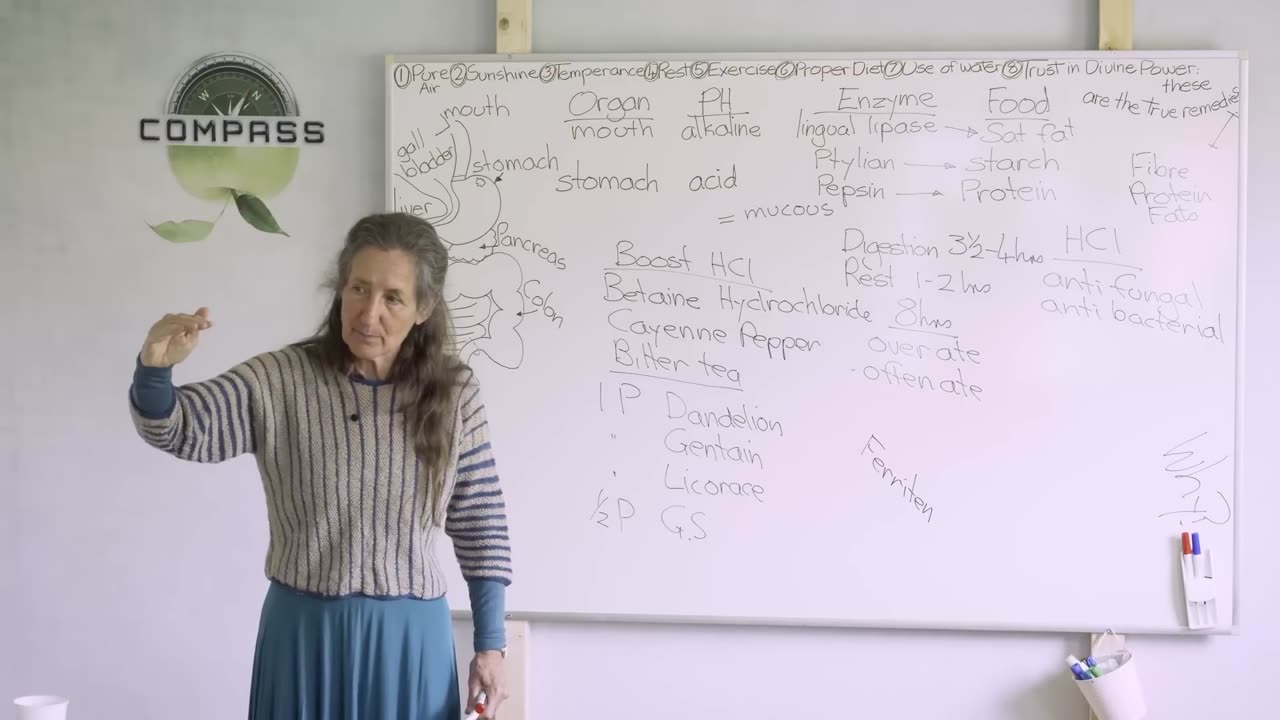 COMPASS
W N
①Pure ②Sunshine ③Temperance ④Rest ⑤Exercise ⑥Proper Diet ⑦Use of water ⑧Trust in Divine Power:
Air
these
are the true remedies
mouth
gall
bladder
stomach
liver
Pancreas
Colon
Organ PH Enzyme Food
mouth alkaline lingual lipase → Sat fat
Ptylian → starch
stomach acid Pepsin → Protein
= mucous
Fibre
Protein
Fats
Boost HCl
Betaine Hydrochloride
Cayenne Pepper
Bitter tea
1 P Dandelion
" Gentain
" Licorace
½ P G.S
Digestion 3½-4hrs
Rest 1-2 hrs
8hrs
over ate
-often ate
HCl
anti fungal
anti bacterial
Ferriten